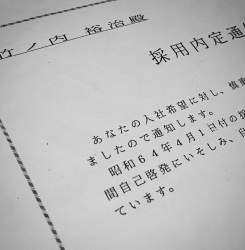 竹ノ内 裕治殿
採用内定通
あなたの入社希望に対し、慎重
ましたので通知します。
昭和64年4月1日付の採
間自己啓発にいそしみ、
ています。